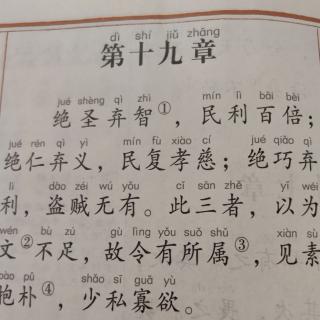 dì shí jiǔ zhāng
第十九章
jué shèng qì zhì mín lì bǎi bèi
绝圣弃智①，民利百倍；
jué rén qì yì mín fù xiào cí jué qiǎo qì
绝仁弃义，民复孝慈；绝巧弃
lì dào zéi wú yǒu cǐ sān zhě yǐ wéi
利，盗贼无有。此三者，以为
wén bù zú gù lìng yǒu suǒ shǔ xiàn sù
文②不足，故令有所属③，见素
bào pǔ shǎo sī guǎ yù
抱朴④，少私寡欲。